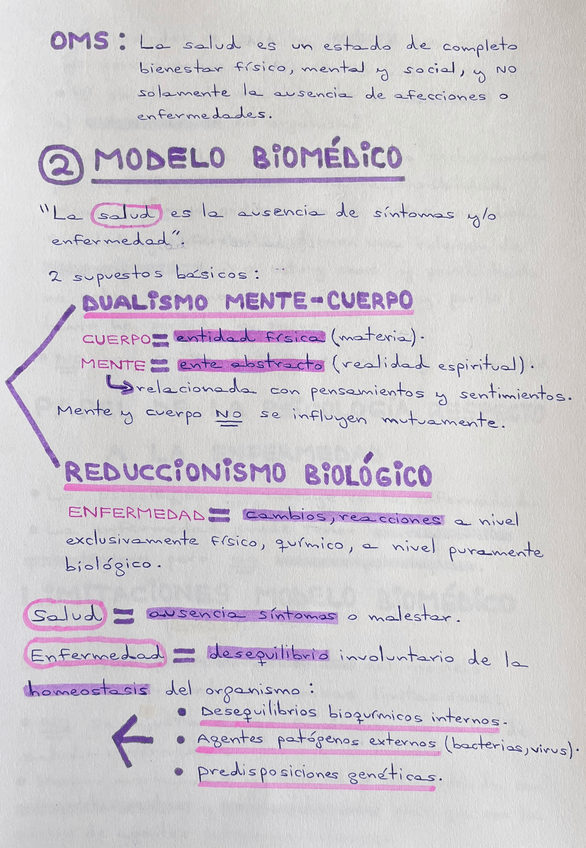 OMS: La salud es un estado de completo
bienestar físico, mental y social, y NO
solamente la ausencia de afecciones o
enfermedades.
2 MODELO BIOMÉDICO
"La salud es la ausencia de síntomas y/o
enfermedad".
2 supuestos básicos:
DUALISMO MENTE-CUERPO
CUERPO = entidad física (materia).
MENTE = ente abstracto (realidad espiritual).
↳ relacionada con pensamientos y sentimientos.
Mente y cuerpo NO se influyen mutuamente.
REDUCCIONISMO BIOLÓGICO
ENFERMEDAD = cambios, reacciones a nivel
exclusivamente físico, químico, a nivel puramente
biológico.
Salud = ausencia síntomas o malestar.
Enfermedad = desequilibrio involuntario de la
homeostasis del organismo:
• Desequilibrios bioquímicos internos.
← • Agentes patógenos externos (bacterias, virus).
• predisposiciones genéticas.